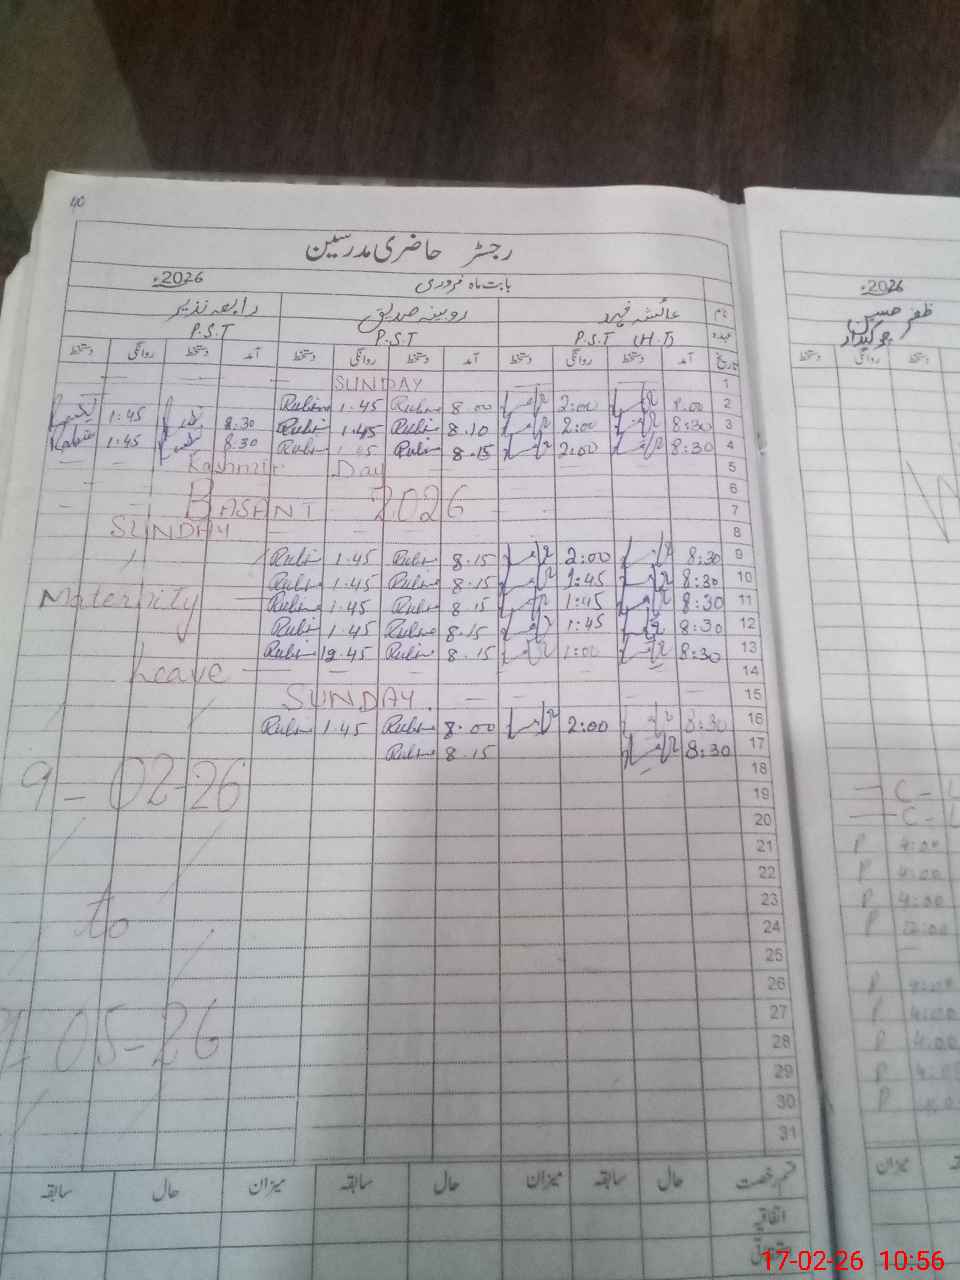 40
رجسٹر حاضری مدرسین
بابت ماہ فروری 2026ء
نام عائشہ فہد روبینہ صدیق رابعہ نذیر
عہدہ P.S.T (H.T) P.S.T P.S.T
تاریخ آمد دستخط روانگی دستخط آمد دستخط روانگی دستخط آمد دستخط روانگی دستخط
1 SUNDAY
2 8.00 2:00 8.00 Rubi 1.45 Rubi
3 8:30 2:00 8.10 Rubi 1.45 Rubi 8.30 1:45
4 8:30 2:00 8.15 Rubi 1.45 Rubi 8.30 1:45
5 Kashmir Day
6
7 BASANT 2026
8 SUNDAY
9 8:30 2:00 8.15 Rubi 1.45 Rubi
10 8:30 1:45 8.15 Rubi 1.45 Rubi
11 8:30 1:45 8.15 Rubi 1.45 Rubi
Maternity
12 8:30 1:45 8.15 Rubi 1.45 Rubi
13 8:30 1:00 8.15 Rubi 12.45 Rubi
14 Leave
15 SUNDAY.
16 8:30 2:00 8.00 Rubi 1.45 Rubi
17 8:30 8.15 Rubi
18
19 9-02-26
20
21
22
23
24 to
25
26
27
28 05-26
29
30
31
قسم رخصت حال سابقہ میزان حال سابقہ میزان حال سابقہ
اتفاقیہ
2026ء
ظفر حسین
چوکیدار
دستخط روانگی دستخط
C-L
C-L
P 4:00
P 4:00
P 4:00
P 12:00
P 4:00
P 4:00
P 4:00
P 4:00
P
میزان
17-02-26 10:56